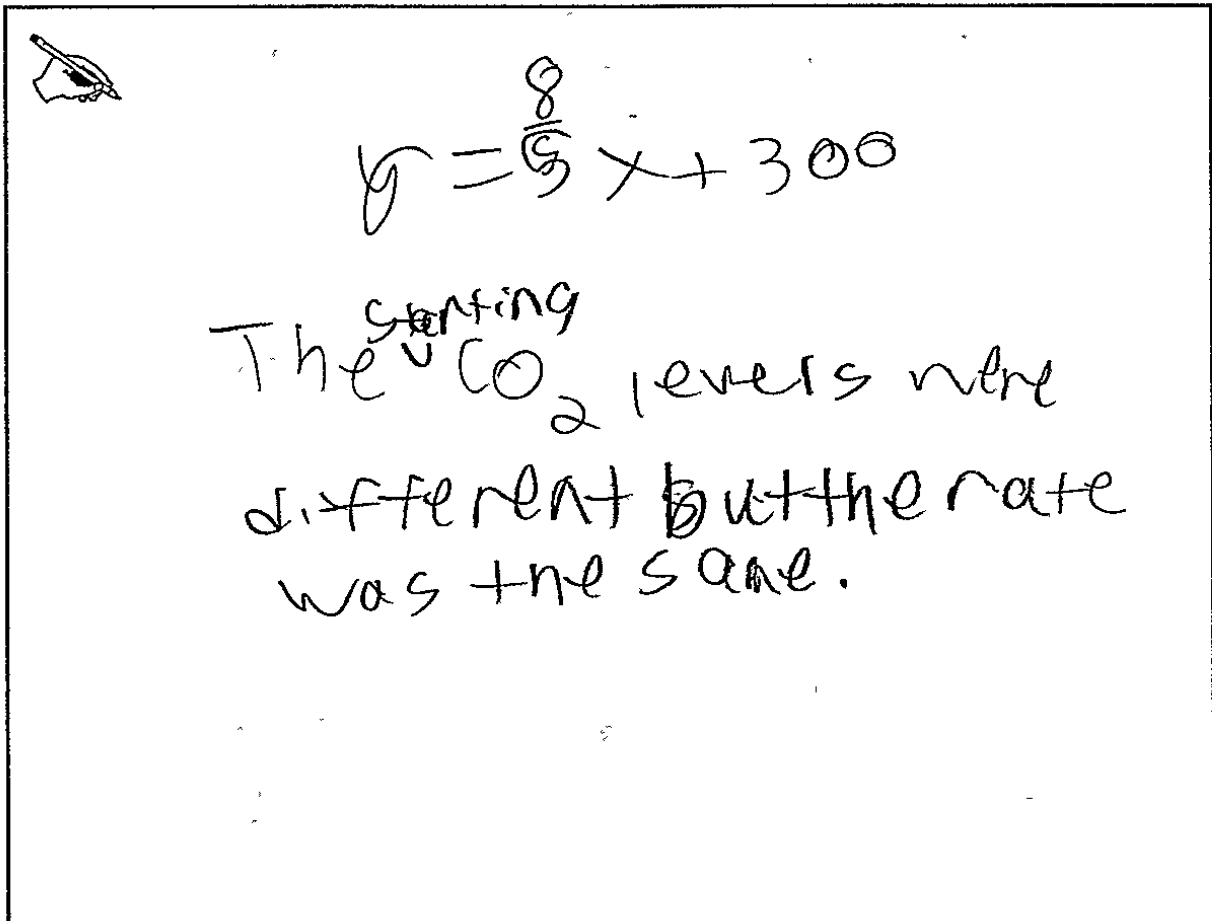 y = 8/5 x + 300
The starting CO₂ levels were
different but the rate
was the same.